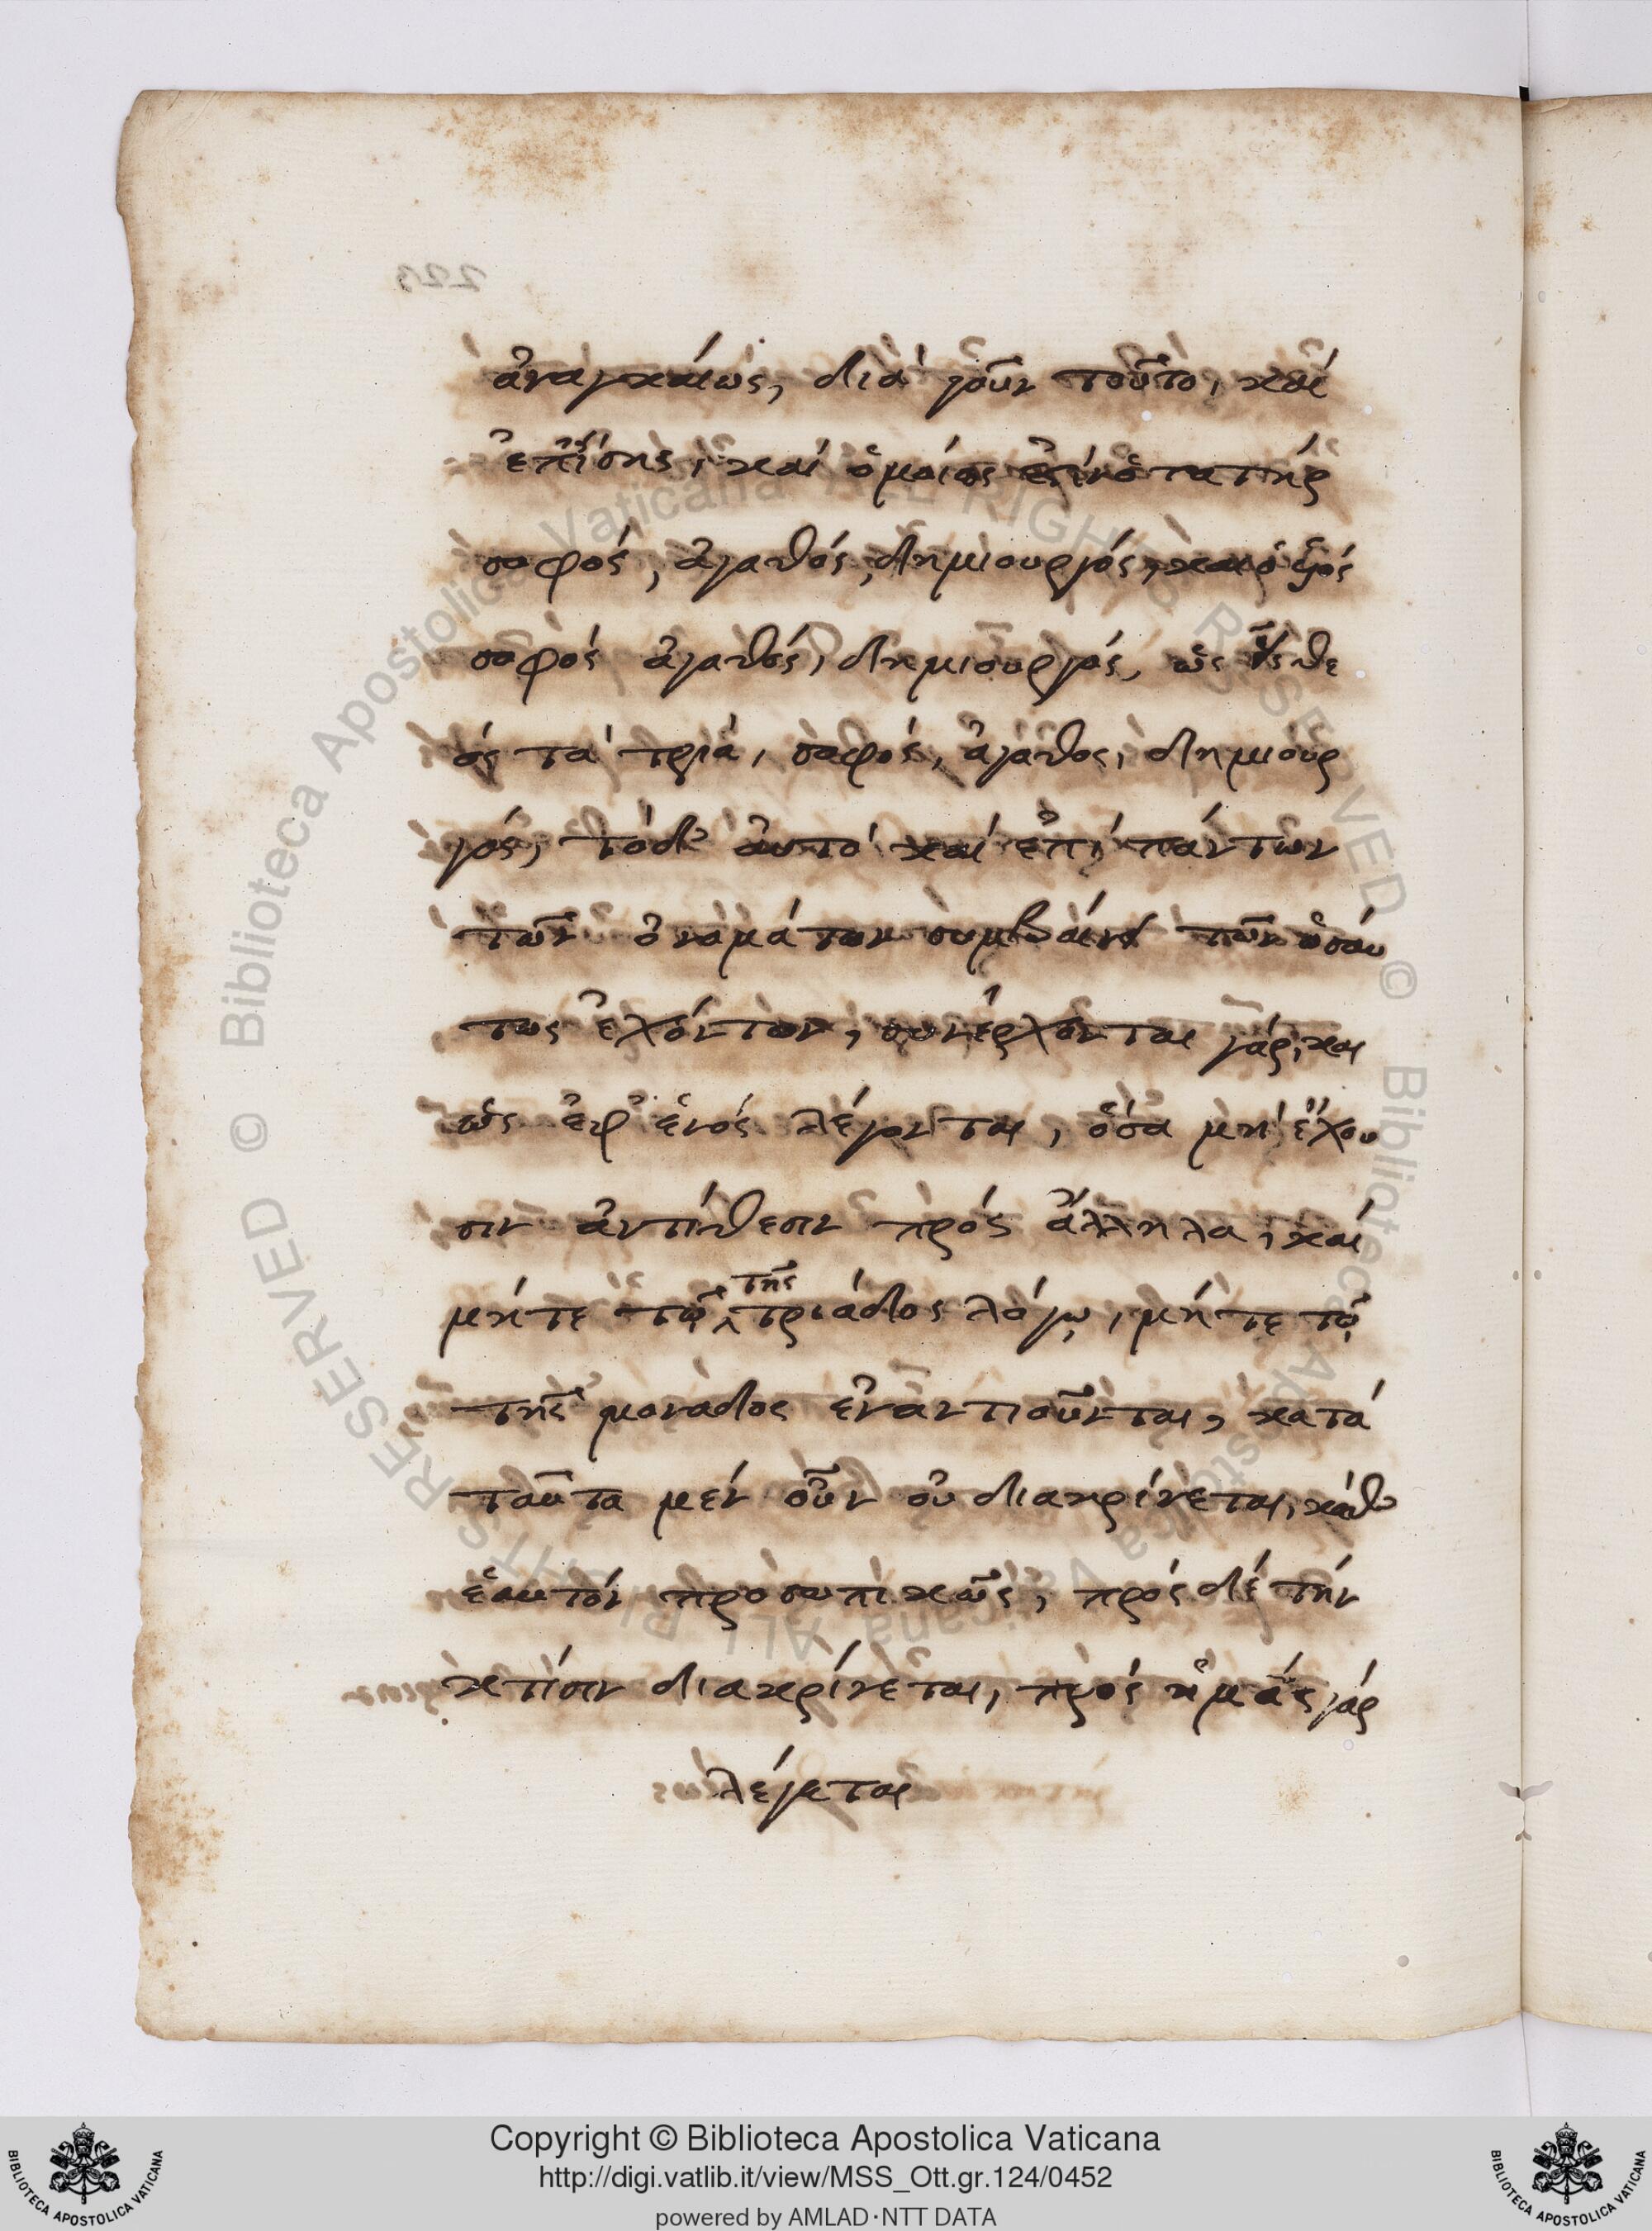 ἀναγκαίως, διὰ γοῦν τοῦτο, καὶ
ἐπΐσης, καὶ ὁμοίως ἐστὶν ὁ πατήρ
σοφός, ἀγαθός, δημιουργός, καὶ ὁ ὑιός
σοφός ἀγαθός, δημιουργός, ὡς εἷς θε
ός τὰ τρία, σοφός, ἀγαθος, δημιουρ
γός, τὸδ' ἀυτό καί ἐπὶ πάντων
τῶν ὀνομάτων συμβαίνει τῶν ὁσάυ
τως ἐχόντων, συνέρχονται γάρ, και
ὡς ἐφ ἑνός λέγονται, ὅσα μή ἔχου
σιν ἀντίθεσιν πρός ἄλληλα, καί
μήτε τῷ τῆς τριάδος λόγῳ, μήτε τῷ
τῆς μοναδος ἐναντιοῦνται, κατά
ταῦτα μέν οὖν οὐ διακρίνεται, κάθ'
ἑαυτόν προσωπικῶς, πρός δέ τήν
κτίσιν διακρίνεται, πρός ἡμᾶς γάρ
λέγεται
223
Copyright © Biblioteca Apostolica Vaticana
http://digi.vatlib.it/view/MSS_Ott.gr.124/0452
powered by AMLAD·NTT DATA
BIBLIOTECA APOSTOLICA VATICANA
BIBLIOTECA APOSTOLICA VATICANA
© Biblioteca Apostolica Vaticana ALL RIGHTS RESERVED © Biblioteca Apostolica Vaticana ALL RIGHTS RESERVED